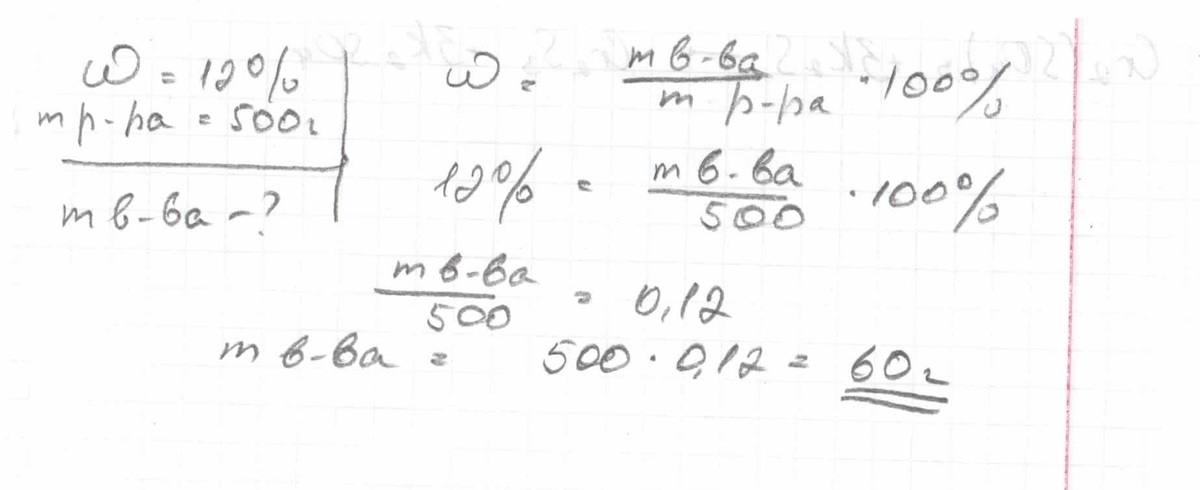 ω = 12%
m р-ра = 500г
m в-ва - ?
ω = m в-ва / m р-ра · 100%
12% = m в-ва / 500 · 100%
m в-ва / 500 = 0,12
m в-ва = 500 · 0,12 = 60г